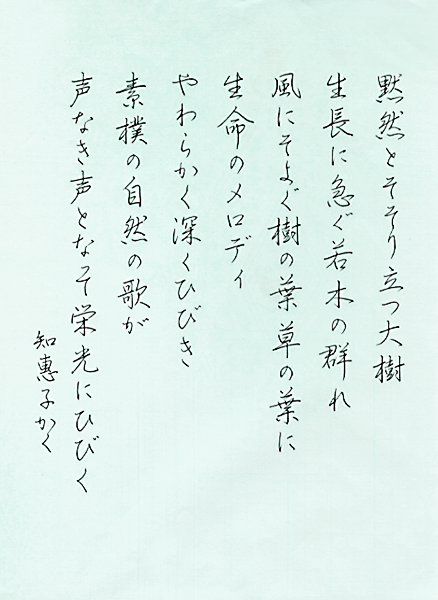 黙然とそそり立つ大樹
生長に急ぐ若木の群れ
風にそよぐ樹の葉草の葉に
生命のメロディ
やわらかく深くひびき
素樸の自然の歌が
声なき声となって栄光にひびく
知惠子かく